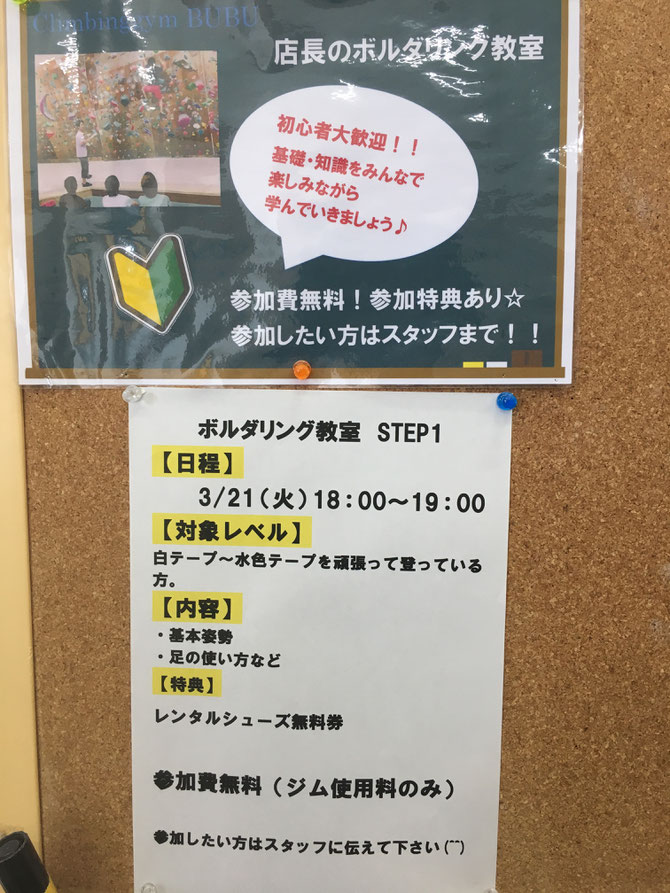 Climbinggym BUBU
店長のボルダリング教室
初心者大歓迎！！
基礎・知識をみんなで
楽しみながら
学んでいきましょう♪
参加費無料！参加特典あり☆
参加したい方はスタッフまで！！
ボルダリング教室 STEP1
【日程】
3/21(火)18:00～19:00
【対象レベル】
白テープ～水色テープを頑張って登っている
方。
【内容】
・基本姿勢
・足の使い方など
【特典】
レンタルシューズ無料券
参加費無料（ジム使用料のみ）
参加したい方はスタッフに伝えて下さい(^^)